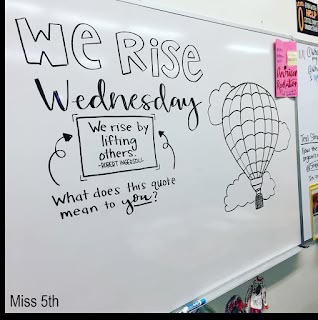 WE RISE
Wednesday
We rise by
lifting
others.
-ROBERT INGERSOLL
What does this quote
mean to you?
Miss 5th